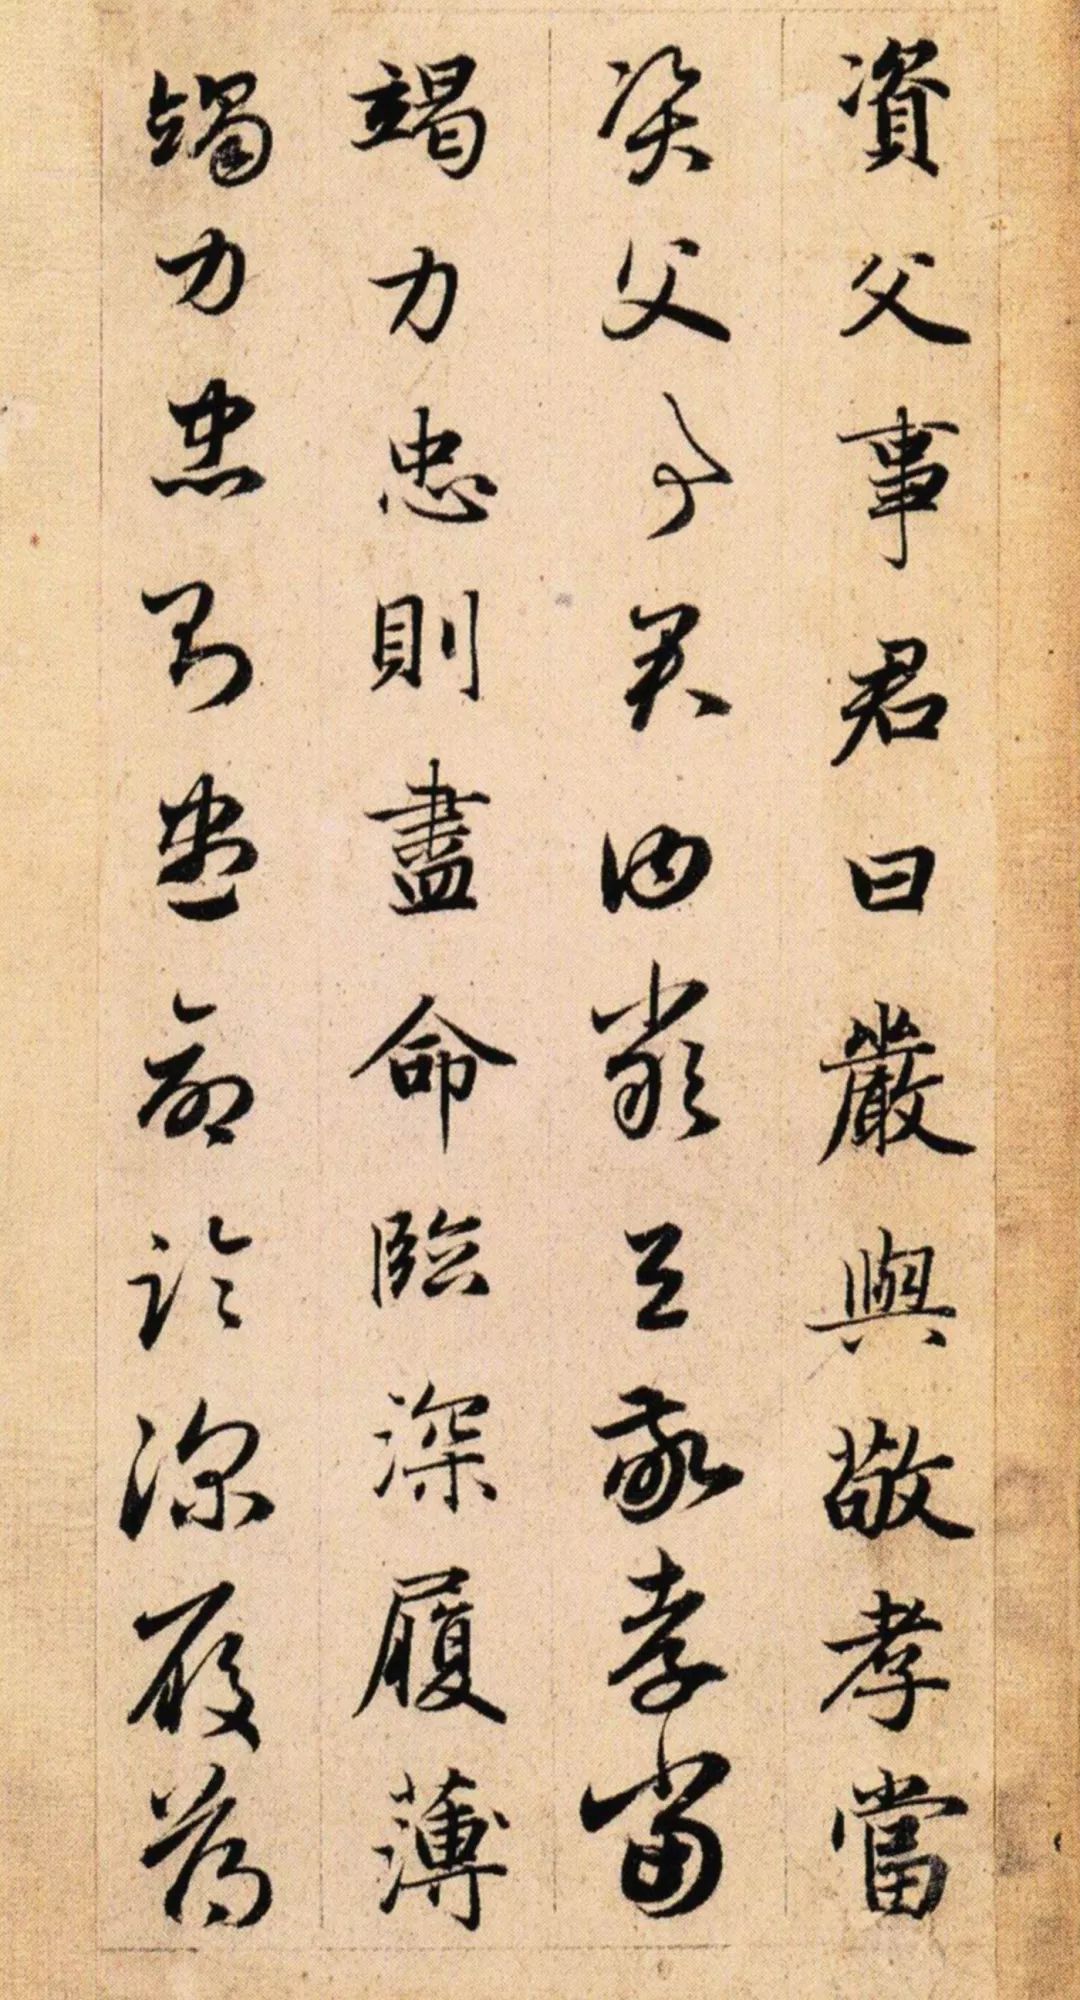 資父事君曰嚴與敬孝當
資父事君曰嚴與敬孝當
竭力忠則盡命臨深履薄
竭力忠則盡命臨深履薄